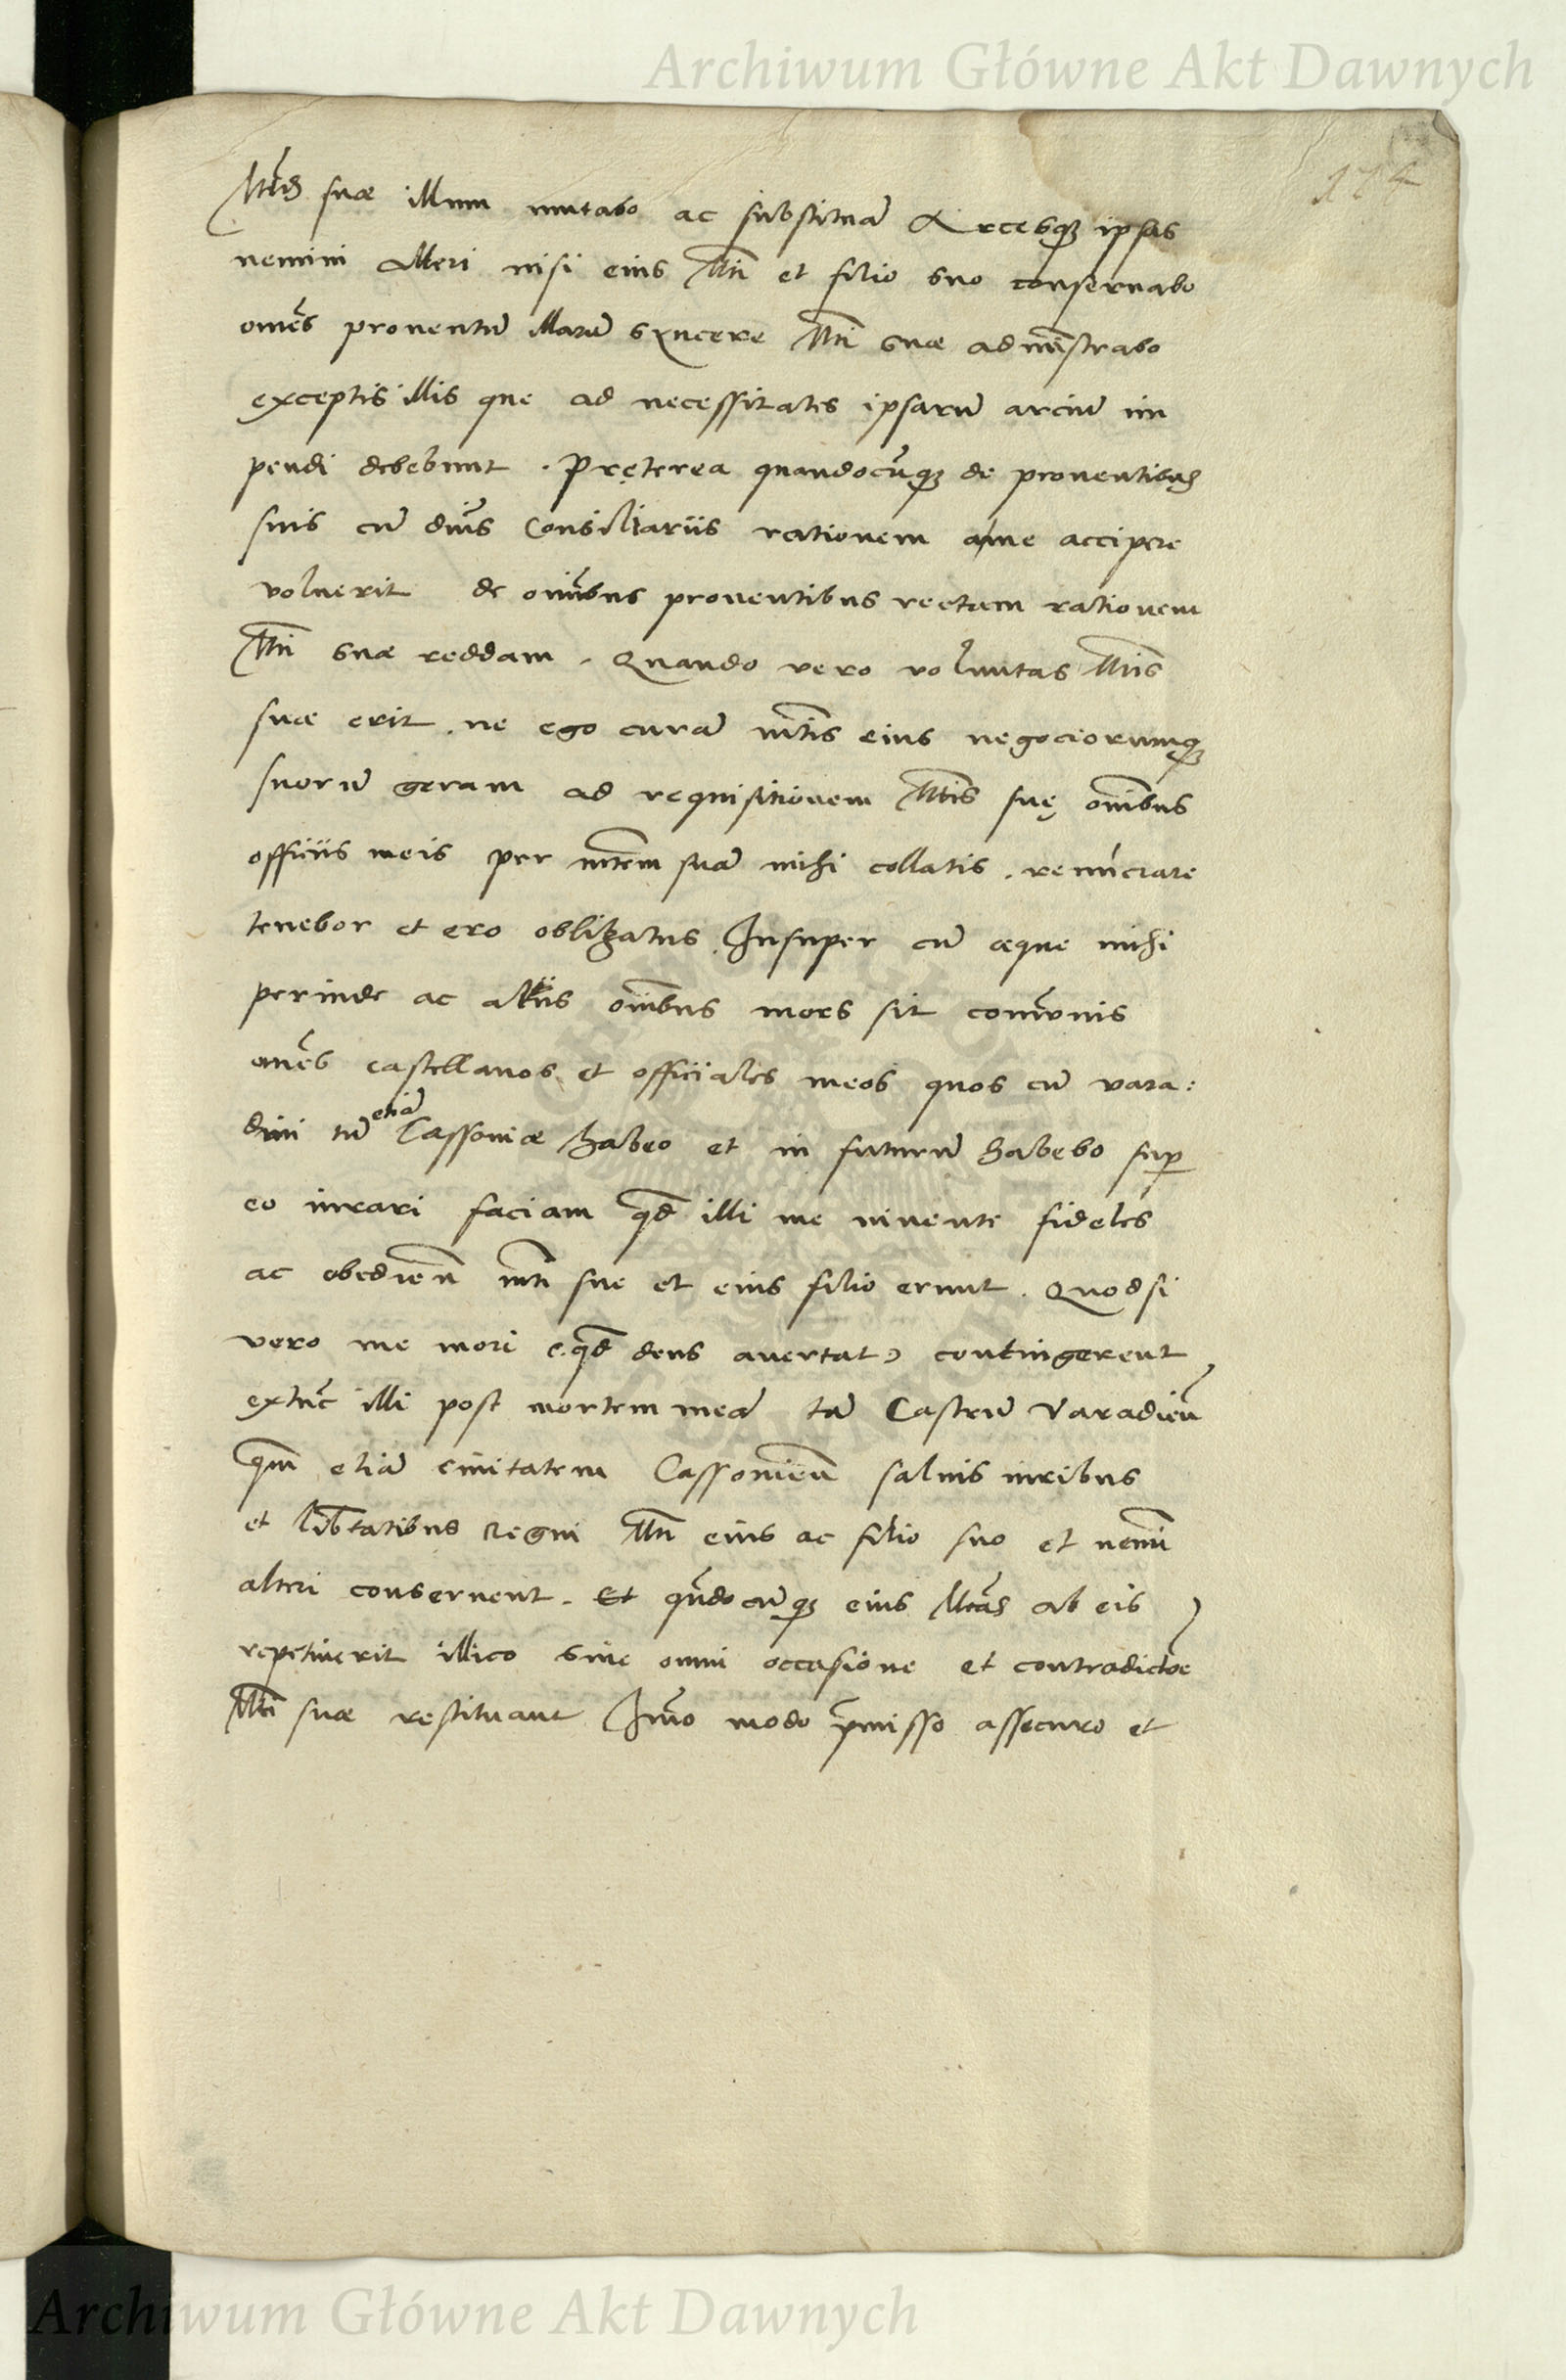 Archiwum Główne Akt Dawnych
174
Mtis suæ illum mutabo ac substituā Arcesq₃ ipsas
nemini alteri nisi eius Mti et filio suo conseruabo
omēs prouentū illarū syncere Mti suæ admistrabo
exceptis illis que ad necessitates ipsarū arciū im
pendi debebunt . Pręterea quandocūq₃ de prouentibus
suis cū dnis Consiliariis rationem a me accipere
voluerit de omībus prouentibus rectam rationem
Mti suæ reddam . Quando vero voluntas Mtis
suæ erit . ne ego curā mtis eius negociorumq₃
suorū geram ad requisitionem Mtis suę omībus
officiis meis per mtem suā mihi collatis . renūciare
tenebor et ero obligatus . Insuper cū æque mihi
perinde ac aliis omībus mors sit comūnis
omēs castellanos et officiales meos quos cū vara:
dini tū etiā Cassouiæ habeo et in futurū habebo sup
eo iurari faciam qd illi me uiuente fideles
ac obedien̄ mti sue et eius filio erunt . Quodsi
vero me mori (qd deus auertat) contingerent
extūc illi post mortem meā tā Castrū Varadień
qm etiā ciuitatem Cassouień saluis iuribus
et libtatibus Regni Mti eius ac filio suo et nemi
alteri conseruent . Et qūdocūq₃ eius Mtas ab eis
repetiuerit illico sine omni occasione et contradictōe
Mti suæ restituant Imo modo p̄misso assecuro et
Archiwum Główne Akt Dawnych